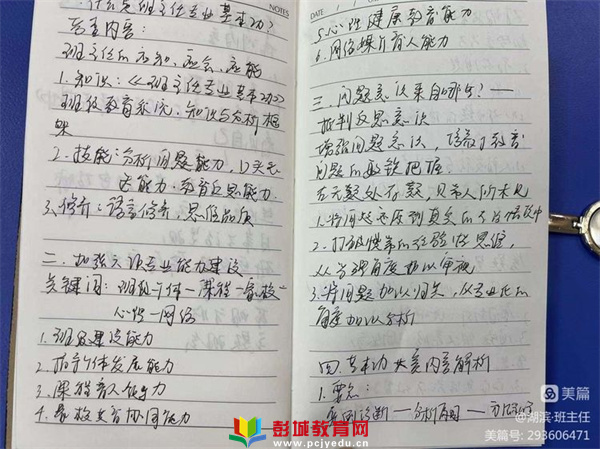 什么是班主任专业基本功?
NOTES
考查内容:
班主任的应知、应会、应能
1.知识:《班主任专业基本功》
班级教育系统、知识与分析框
架
2.技能:分析问题能力,口头表
达能力、教育反思能力
3.修养:语言修养、思维品质
二、加强六项专业能力建设
关键词:班级—个体—课程—家校—
心理—网络
1.班级建设能力
2.指导个体发展能力
3.课程育人能力
4.家校共育协同能力
DATE
5.心理健康教育能力
6.网络媒介育人能力
三、问题意识来自哪些?——
批判反思意识
增强问题意识,培养了教育
问题的敏锐把握
在无疑处存疑,见常人所未见
1.将问题还原到真实的情境中
2.打破惯常的经验性思维,
从学理角度加以审视
3.将问题加以归类,从专业化的
角度加以分析
四、基本功大赛内容解析
1.要点:
案例诊断——分析原因——
彭城教育网
www.pcjyedu.cn
美篇
@湖滨·班主任
美篇号: 293606471